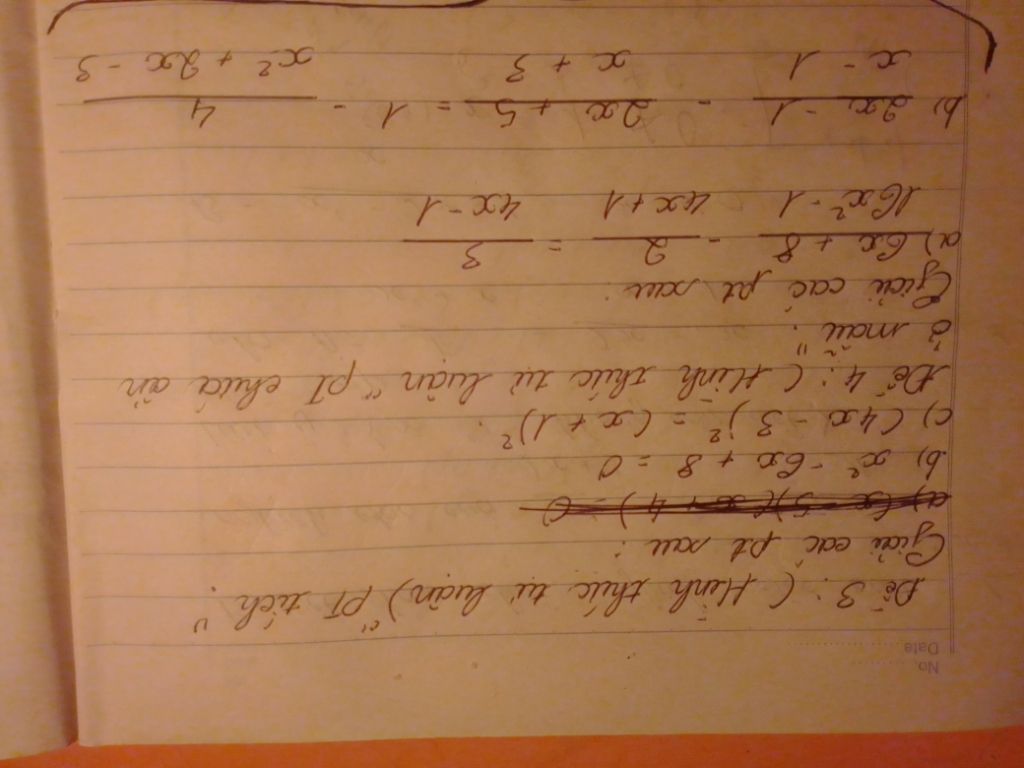 No.
Data
Đề 3: (Hình thức tự luận) "PT tích"
Giải các pt sau:
a) (x-5)(x+4) = 0
b) x² - 6x + 8 = 0
c) (4x - 3)² = (x + 1)².
Đề 4: (Hình thức tự luận "PT chứa ẩn
ở mẫu":
Giải các pt sau:
a) \frac{6x + 8}{16x² - 1} - \frac{2}{4x + 1} = \frac{3}{4x - 1}
b) \frac{2x - 1}{x - 1} - \frac{2x + 5}{x + 3} = 1 - \frac{4}{x² + 2x - 3}